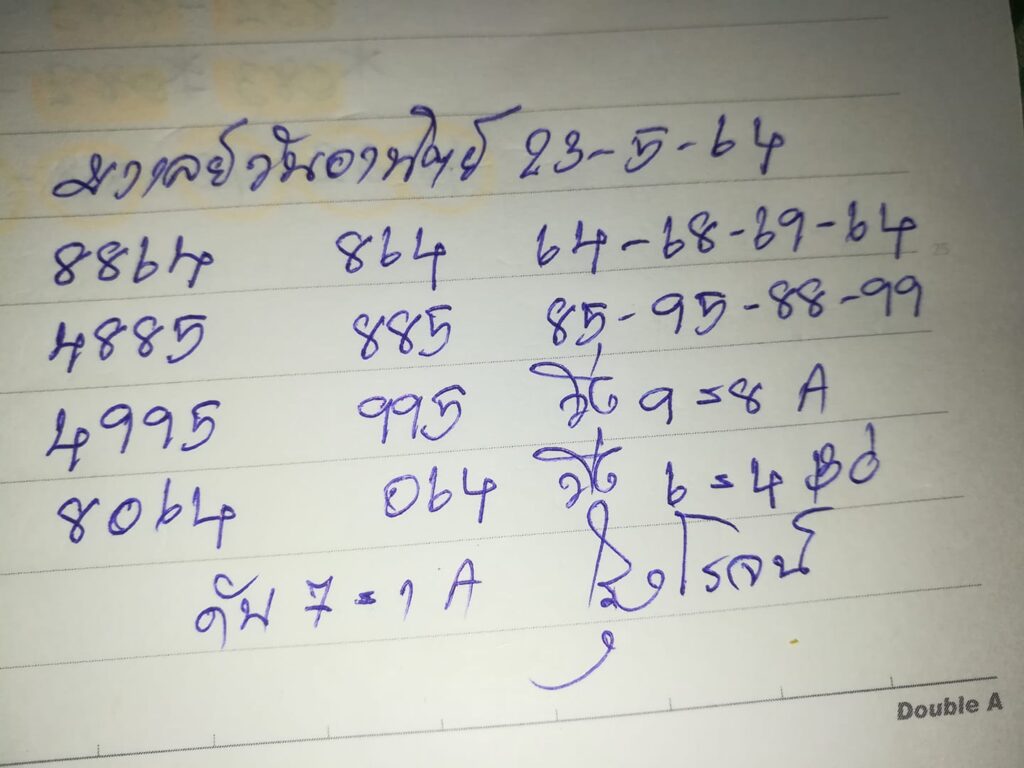 มาเลย์วันอาทิตย์ 23-5-64
8864 864 64-68-69-64
4885 885 85-95-88-99
4995 995 วิ่ง 9=8 A
8064 064 วิ่ง 6=4
ดับ 7=1 A โรจน์
25
Double A